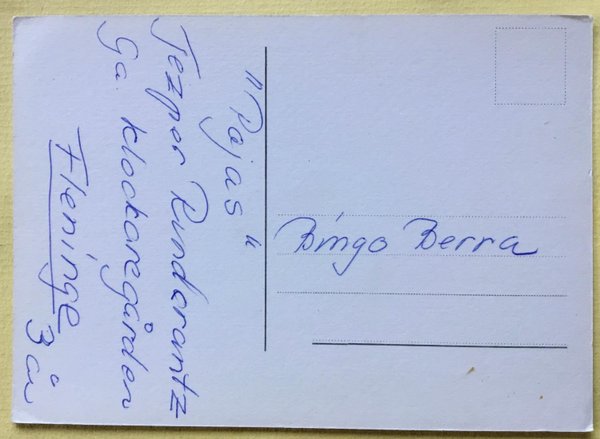 "Pajas"
Jezper Rundcrantz
Ga. klockaregården
Fleninge
3 år
Bingo Berra